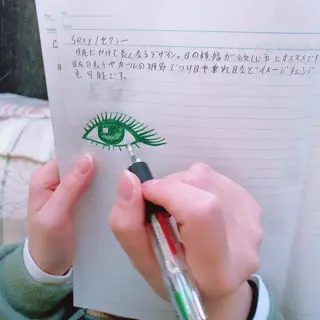 No.
Date
C Sexy/セクシー
目尻にかけて長くなるデザイン。目の横幅が欲しい方にオススメです
目尻の長さやカールの調節でつり目や垂れ目などイメージチェンジ
も可能です。